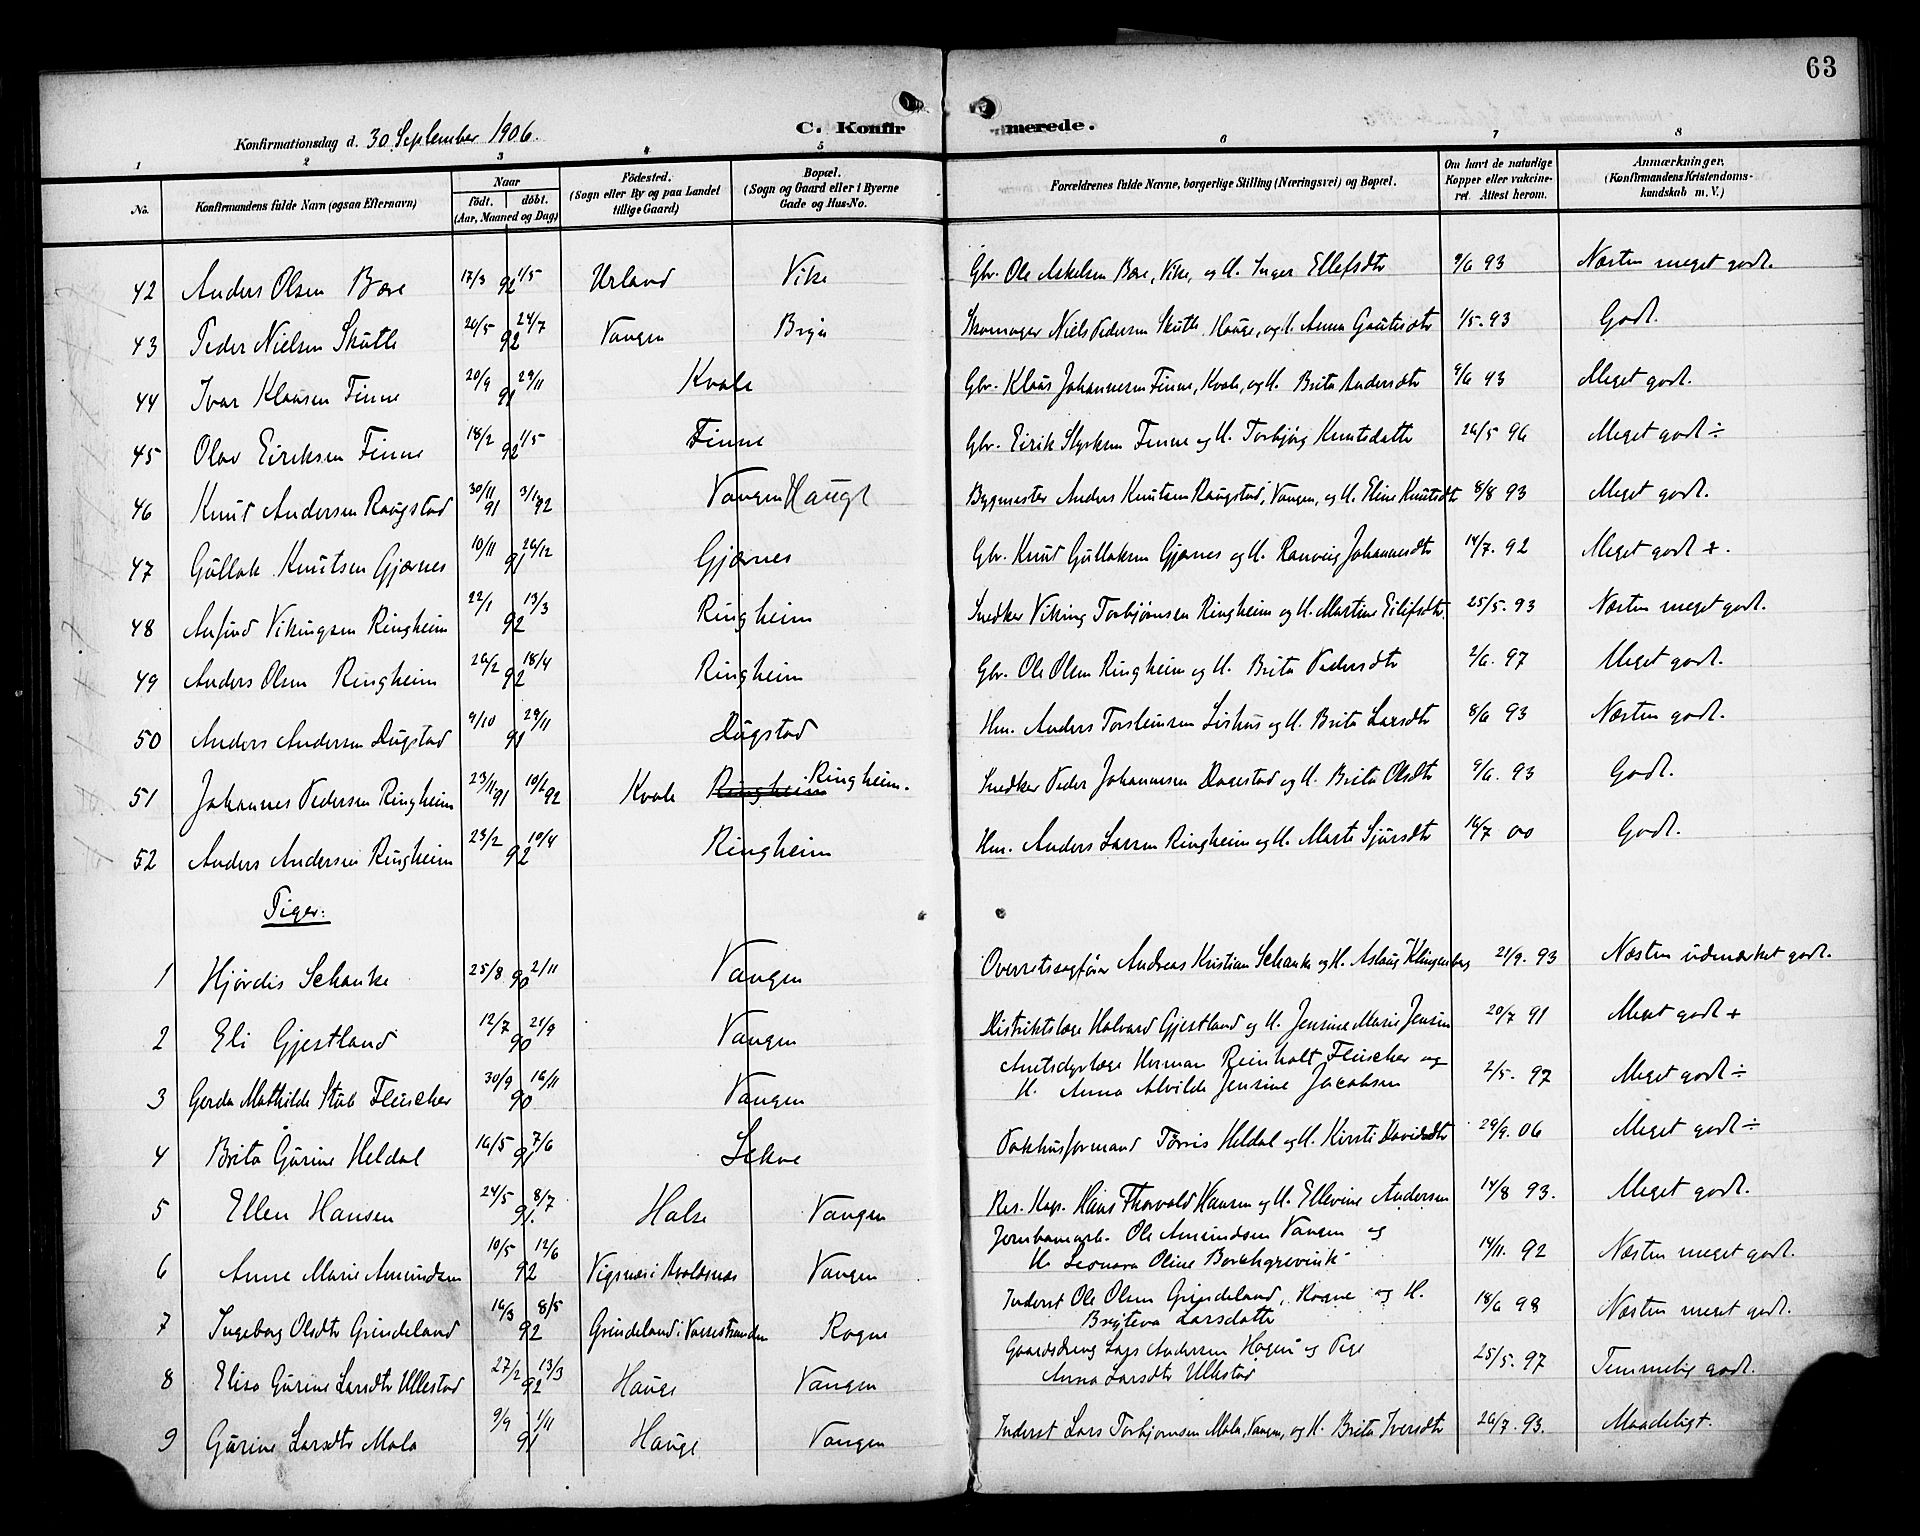 63
Konfirmationsdag d. 30 September 1906.
C. Konfirmerede.
1 2 3 4 5 6 7 8
No.
Konfirmandens fulde Navn (ogsaa Efternavn)
Naar
födt. döbt.
(Aar, Maaned og Dag)
Födested.
(Sogn eller By og paa Landet
tillige Gaard)
Bopæl.
(Sogn og Gaard eller i Byerne
Gade og Hus-No.
Forældrenes fulde Navne, borgerlige Stilling (Næringsvei) og Bopæl.
Om havt de naturlige
Kopper eller vakcine-
ret. Attest herom.
Anmærkninger.
(Konfirmandens Kristendoms-
kundskab m. V.)
42 Anders Olsen Bøe 17/3 92 1/5 Urland Vike Gbr. Ole Askelsen Bøe, Vike, og H. Inger Ellefsdtr 9/6 93 Næsten meget godt.
43 Peder Nielsen Skutle 20/5 92 24/7 Vangen Bryn Skomager Niels Pedersen Skutle, Hauge, og H. Anna Gautesdtr 1/5. 93 Godt.
44 Ivar Klausen Finne 20/9 91 29/11 Kvale Gbr. Klaus Johannesen Finne, Kvale, og H. Brita Andersdtr 9/6 93 Meget godt.
45 Olav Eiriksen Finne 18/2 92 1/5 Finne Gbr. Eirik Styrksen Finne og H. Torbjørg Knutsdatter 26/5 96 Meget godt ÷
46 Knut Andersen Raugstad 30/11 91 3/1 92 Vangen Haugt Bygmester Anders Knutsen Raugstad, Vangen, og H. Eline Knutsdtr 8/8 93 Meget godt.
47 Gullak Knutsen Gjærnes 10/11 91 26/12 Gjærnes Gbr. Knut Gullaksen Gjærnes og H. Ranveig Johannesdtr 14/7. 92 Meget godt +.
48 Anfind Vikingsen Ringheim 22/1 92 13/3 Ringheim Snedker Viking Torbjørnsen Ringheim og H. Martine Eilifsdtr. 25/5. 93 Næsten meget godt.
49 Anders Olsen Ringheim 26/2 92 18/4 Ringheim Gbr. Ole Olsen Ringheim og H. Brita Pedersdtr 2/6. 97 Meget godt.
50 Anders Andersen Dugstad 9/10 91 29/11 Dugstad Hm. Anders Torsteinsen Lishus og H. Brita Larsdtr 8/6 93 Næsten godt.
51 Johannes Pedersen Ringheim 23/11 91 10/2 92 Kvale Ringheim Ringheim. Snedker Peder Johannesen Dagestad og H. Brita Olsdtr 9/6. 93 Godt.
52 Anders Andersen Ringheim 23/2 92 10/4 Ringheim Hm. Anders Larsen Ringheim og H. Marta Sjursdtr 16/7 00 Godt.
Piger:
1 Hjørdis Schanke 25/8 90 2/11 Vangen Overretssagfører Andreas Kristian Schanke og H. Aslaug Klingenberg 21/9. 93 Næsten udmærket godt.
2 Eli Gjestland 12/7 90 21/9 Vangen Distriktslæge Halvard Gjestland og H. Jensine Marie Jensen 20/7 91 Meget godt +
3 Gerda Mathilde Stub Fleischer 30/9 90 16/11 Vangen Amtsdyrlæge Herman Reinholt Fleischer og
H. Anna Alvilde Jensine Jacobsen 2/5. 97 Meget godt ÷
4 Brita Gurine Heldal 16/5 91 7/6 Lekve Pakhusformand Torris Heldal og H. Kirsti Davidsdtr 29/9. 06 Meget godt ÷
5 Ellen Hansen 24/5 91. 8/7 Halse Vangen Res. Kap. Hans Thorvald Hansen og H. Ellevine Andersen 14/8 93. Meget godt.
6 Anne Marie Amundsen 10/5 92 12/6 Vigsnæs i Avaldsnæs Vangen Jernbanearb. Ole Amundsen Vangen og
H. Leonora Oline Borchgrevink 14/11. 92 Næsten meget godt.
7 Ingeborg Olsdtr Grindeland 16/3 92 8/5 Grindeland i Vossestranden Rogne Inderst Ole Olsen Grindeland, Rogne og H.
Brytteva Larsdatter 18/6 98 Næsten meget godt.
8 Elisa Gurine Larsdtr Ullestad 27/2 92 13/3 Hauge Vangen Gaardsdreng Lars Andersen Hagen og Pige
Anna Larsdtr Ullestad 25/5. 97 Temmelig godt.
9 Gurine Larsdtr Mala 9/9 91 1/11 Hauge Vangen Inderst Lars Torbjørnsen Mala, Vangen, og H. Brita Iversdtr 26/7. 93. Maadeligt.